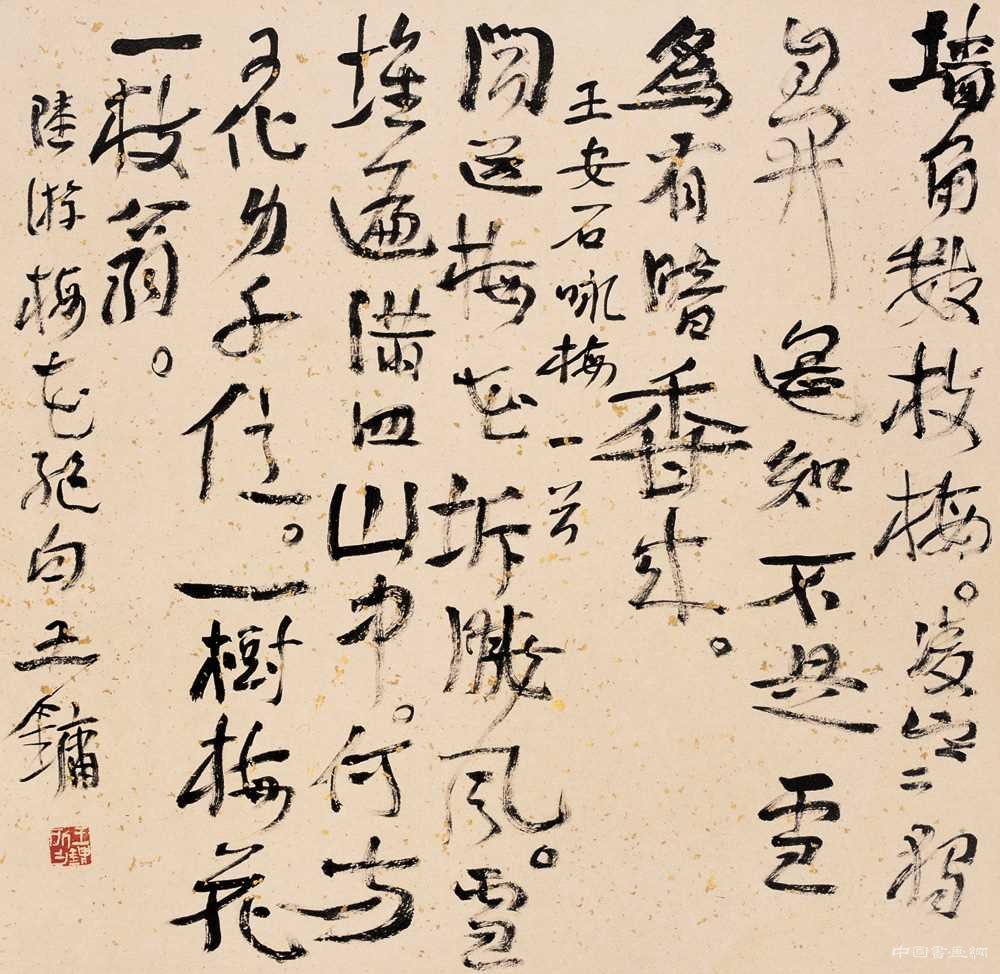 墙角数枝梅。凌寒独
自开 遥知不是雪
為有暗香来。
王安石咏梅一首
闻道梅花坼曉风。雪
堆遍满四山中。何方
可化身千亿。一樹梅花
一放翁。
陸游梅花绝句王鏞
中国書画網